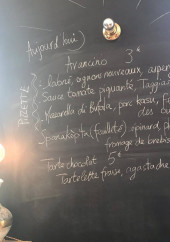 Aujourd'hui )
Arancino 3€
PIZZETTE
- labné, oignons nouveaux, asper
- Sauce tomate piquante, Taggia
- Mozzarella di Bufala, porc
des ou
- (feuilletée) épinard, p
fromage de brebis
Tarte chocolat 5€
Tartelette fraise, agastache